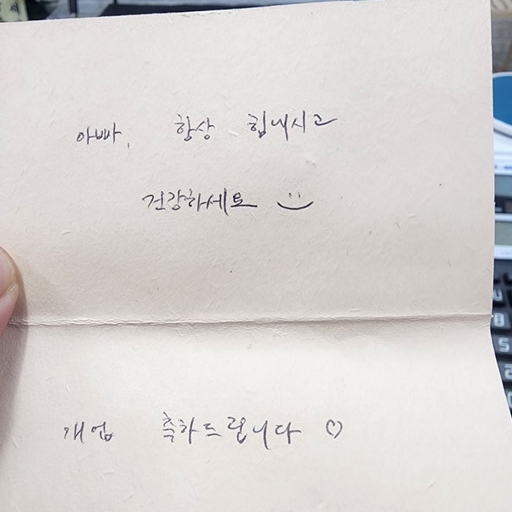 아빠, 항상 힘내시고
건강하세요 :)
개업 축하드립니다 ♡